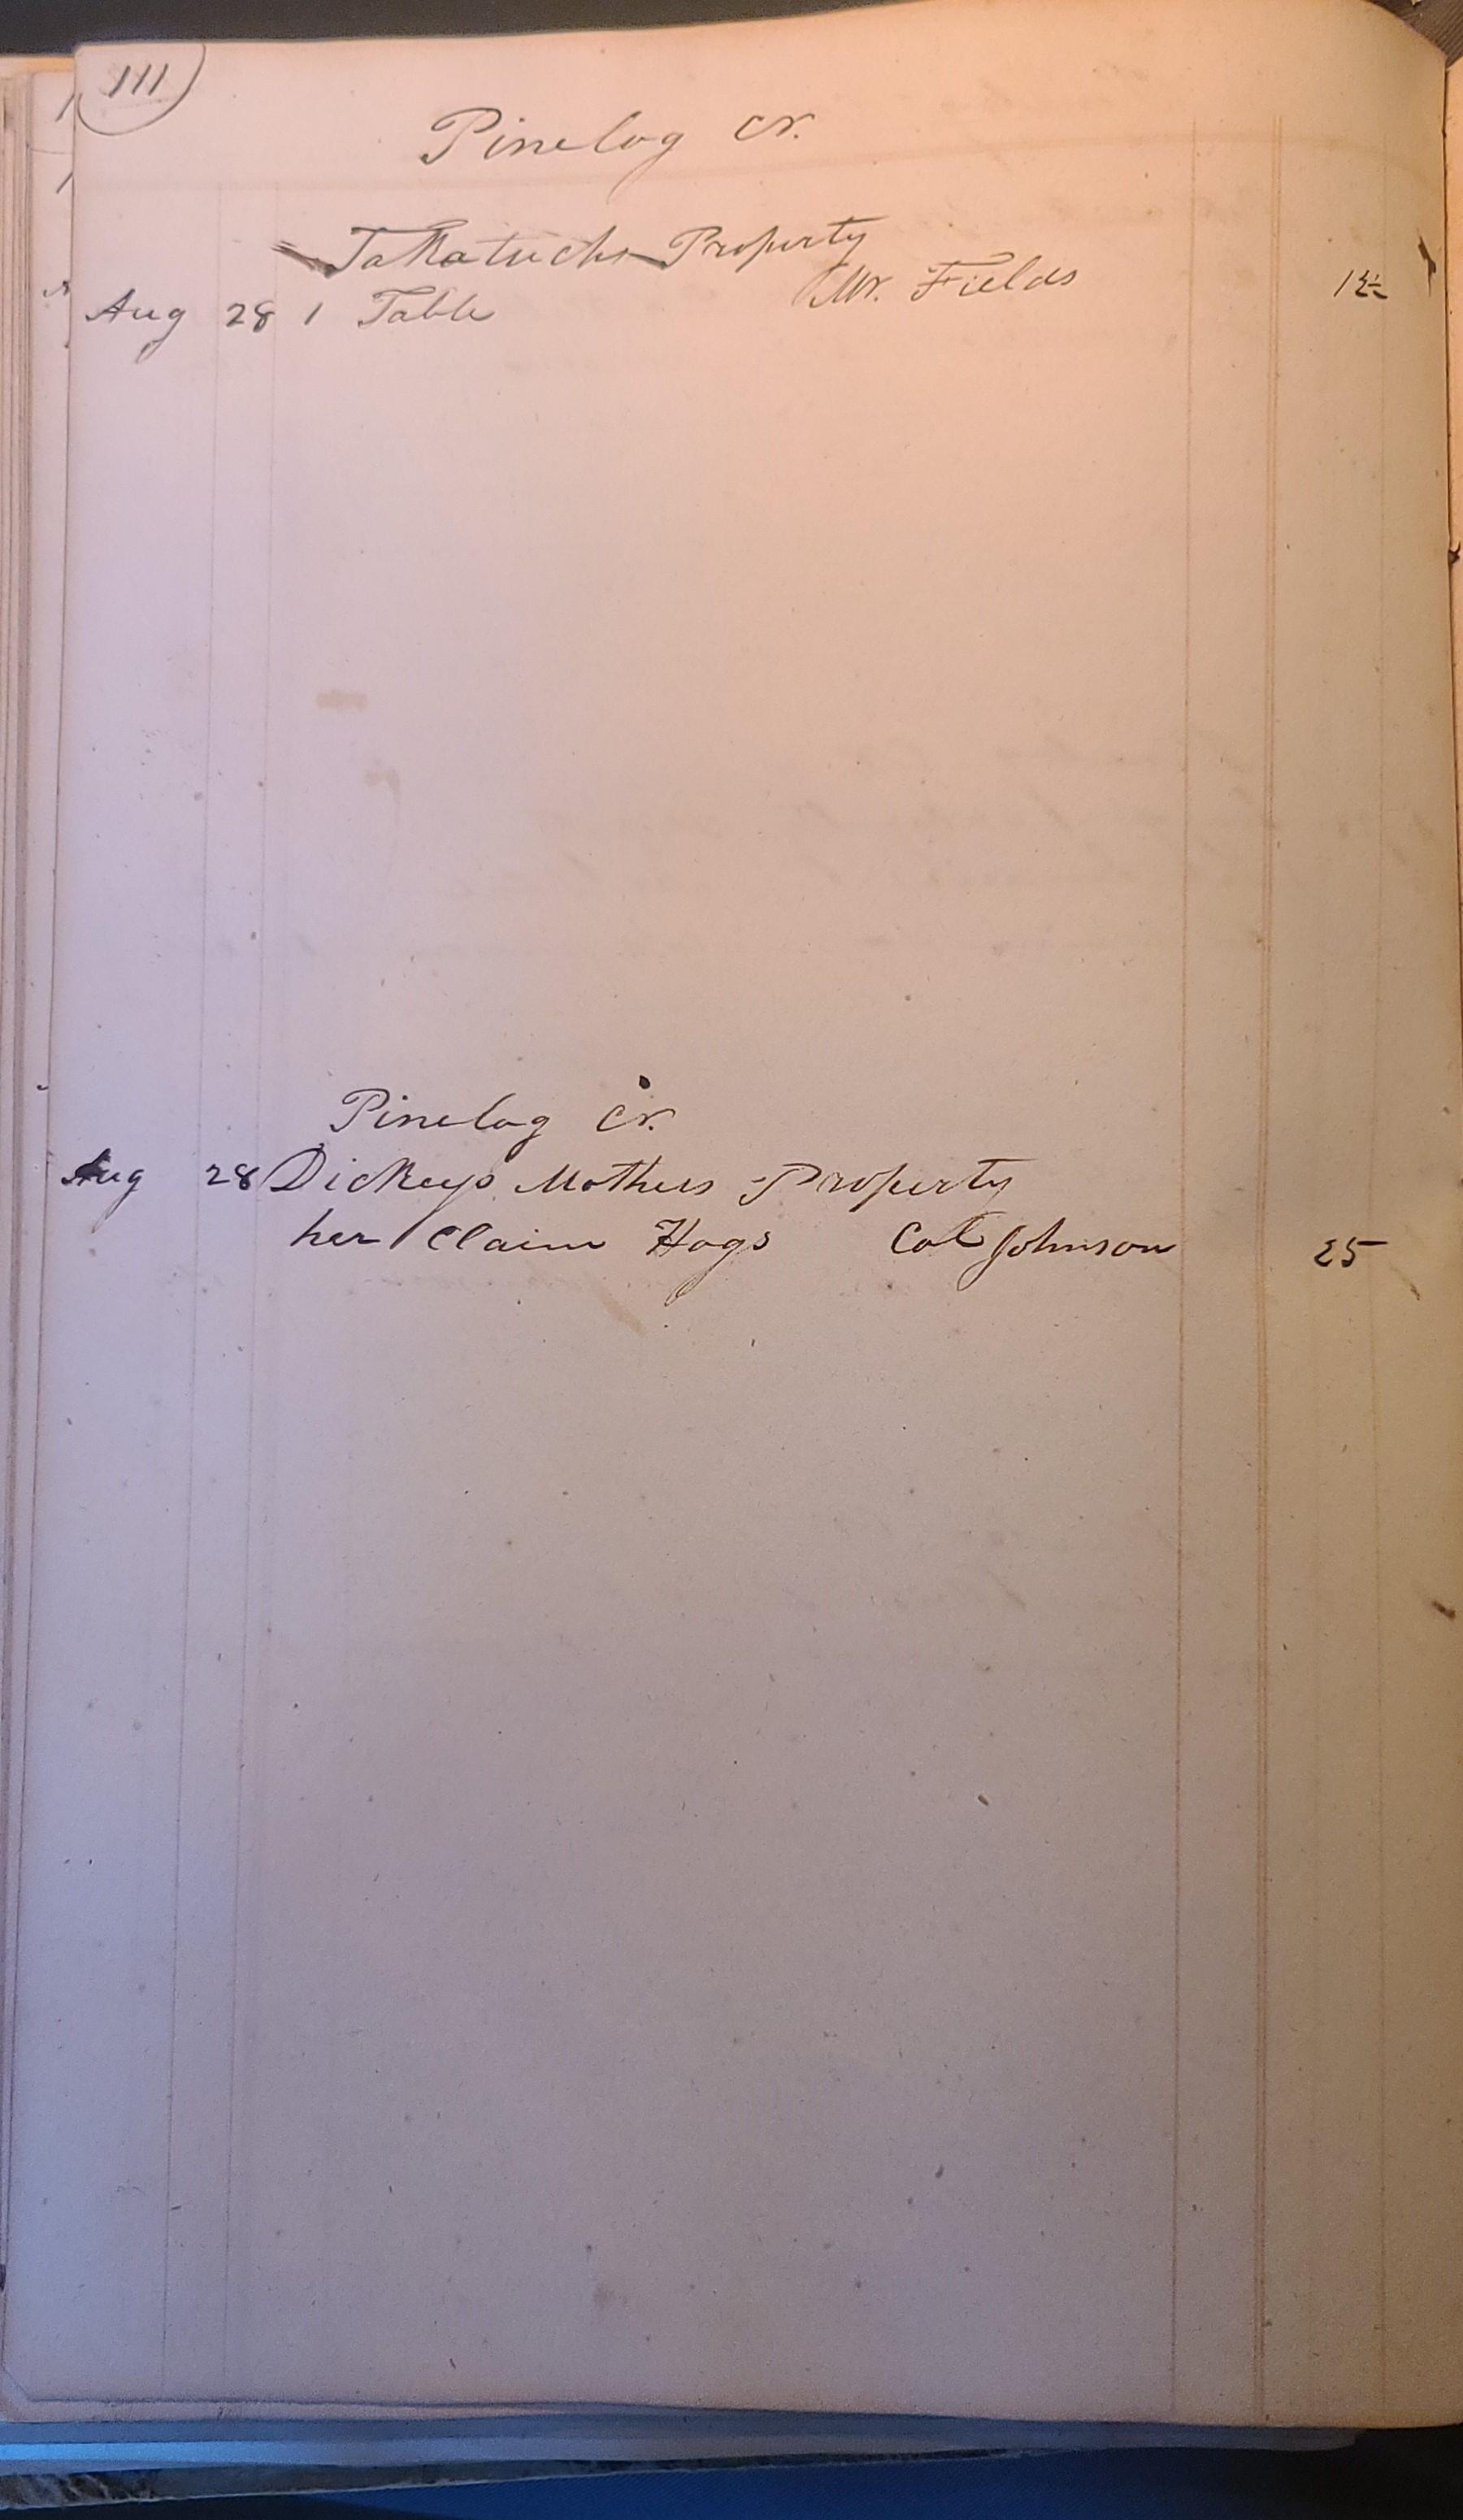 111
Pinelog cr.
Takatuchs Property
Aug 28 1 Table Mr. Fields
Pinelog Cr.
Aug 28 Dickeys Mothers Property
her Claim Hogs Col Johnson 25